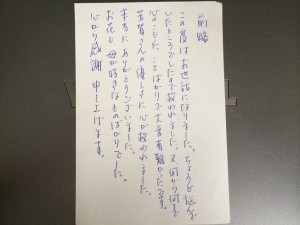 前略
この度はお世話になりました。ちょうど悩んで
いたところでしたので救われました。又何から何まで
心のこもったことばかりで大変有難かったです。
皆さんの優しさに心が救われました。
本当にありがとうございました。
お花も母が好きなものばかりでした。
心から感謝申し上げます。